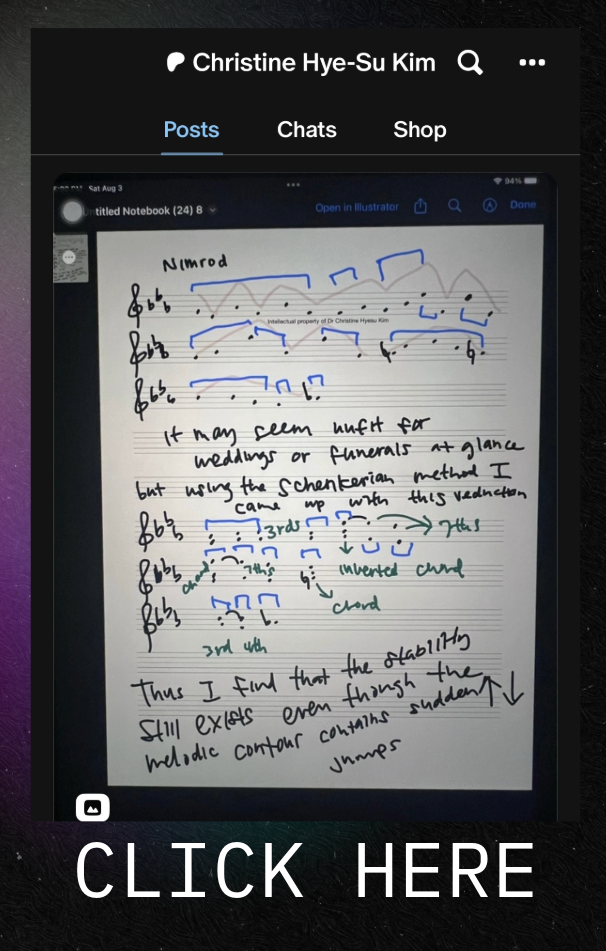 Christine Hye-Su Kim
Posts Chats Shop
Sat Aug 3
94%
titled Notebook (24) 8
Open in Illustrator
Done
Nimrod
Intellectual property of Dr Christine Hyesu Kim
It may seem unfit for
weddings or funerals at glance
but using the Schenkerian method I
came up with this reduction
3rds
7ths
chord
7ths
inverted chord
chord
3rd 4th
Thus I find that the stability
still exists even though the
melodic contour contains sudden
jumps
CLICK HERE